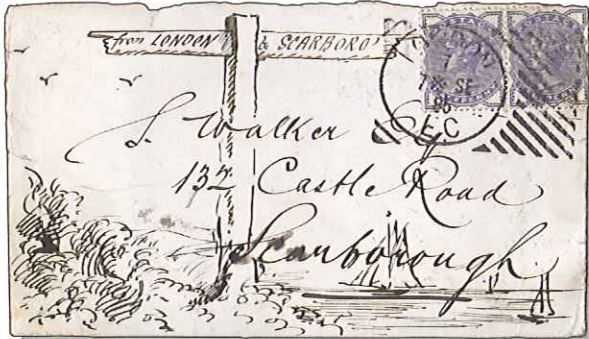 from LONDON to SCARBORO'
LONDON
7
SE
85
E C
S. Walker Esq
132 Castle Road
Scarborough.